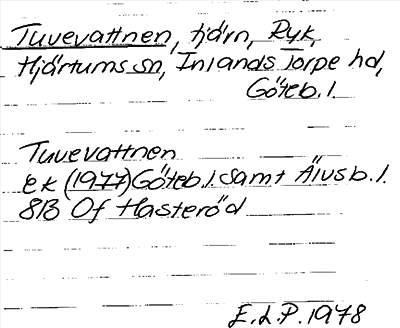 Tuvevattnen, tjärn, Ryk,
Hjärtums sn, Inlands Torpe hd,
Göteb. l.
Tuvevattnen
ek (1977) Göteb. l. samt Älvsb. l.
8B Of Hasteröd
E.L.P. 1978